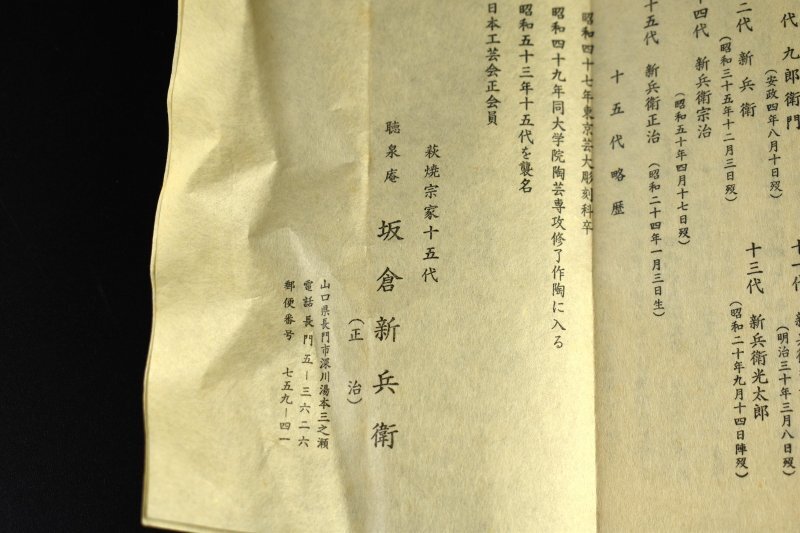 代 九郎衛門
(安政四年八月十日歿)
十一代 新兵衛
(明治三十年三月八日歿)
二代 新兵衛
(昭和三十五年十二月三日歿)
十三代 新兵衛光太郎
(昭和二十年九月十四日陣歿)
十四代 新兵衛宗治
(昭和五十年四月十七日歿)
十五代 新兵衛正治 (昭和二十四年一月三日生)
十五代略歴
昭和四十七年東京芸大彫刻科卒
昭和四十九年同大学院陶芸専攻修了作陶に入る
昭和五十三年十五代を襲名
日本工芸会正会員
萩焼宗家十五代
聴泉庵 坂倉新兵衛
(正治)
山口県長門市深川湯本三之瀬
電話長門五ー三六二六
郵便番号 七五九ー四一